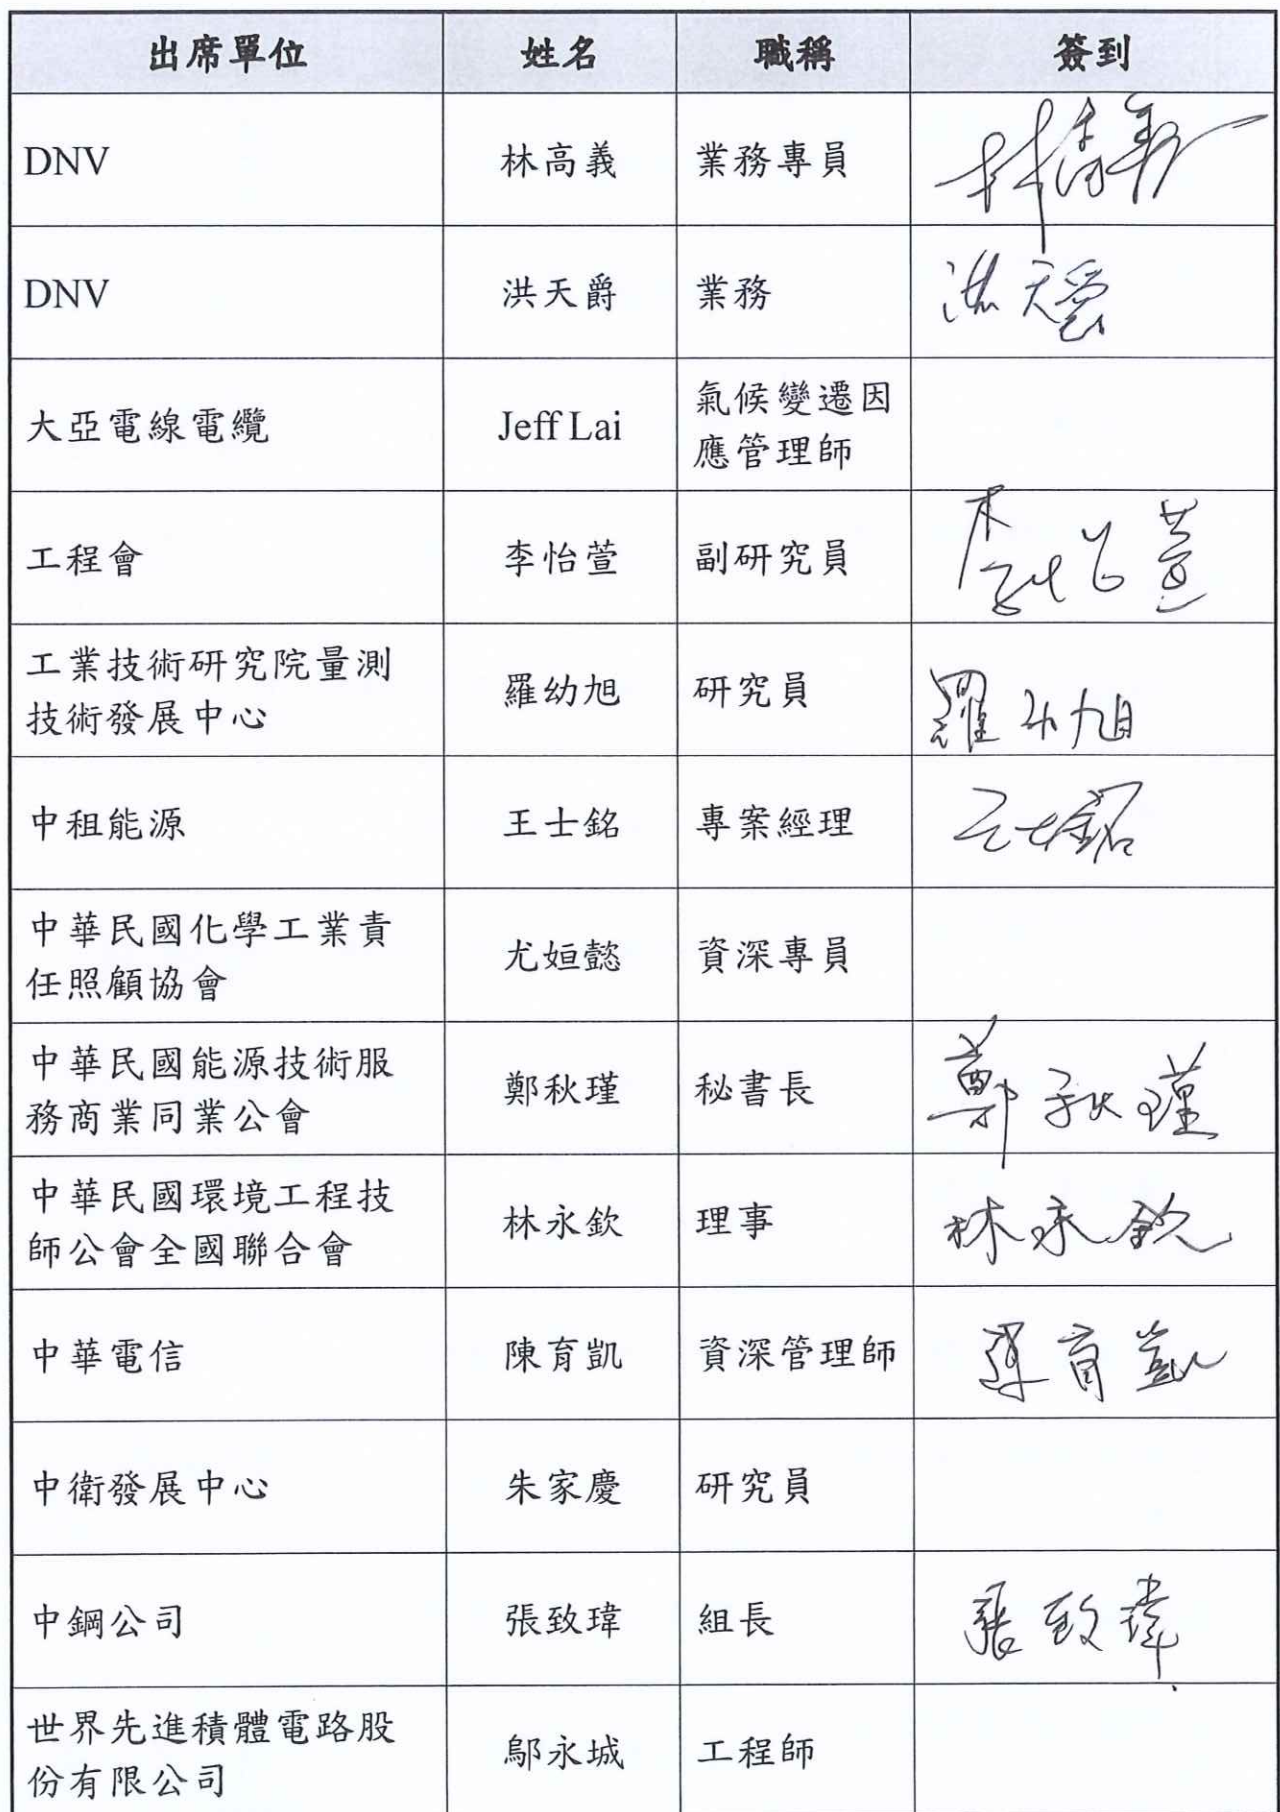 出席單位 姓名 職稱 簽到
DNV 林高義 業務專員 林高義
DNV 洪天爵 業務 洪天爵
大亞電線電纜 Jeff Lai 氣候變遷因
應管理師
工程會 李怡萱 副研究員 李怡萱
工業技術研究院量測
技術發展中心 羅幼旭 研究員 羅幼旭
中租能源 王士銘 專案經理 王士銘
中華民國化學工業責
任照顧協會 尤姮懿 資深專員
中華民國能源技術服
務商業同業公會 鄭秋瑾 秘書長 鄭秋瑾
中華民國環境工程技
師公會全國聯合會 林永欽 理事 林永欽
中華電信 陳育凱 資深管理師 陳育凱
中衛發展中心 朱家慶 研究員
中鋼公司 張致瑋 組長 張致瑋
世界先進積體電路股
份有限公司 鄔永城 工程師